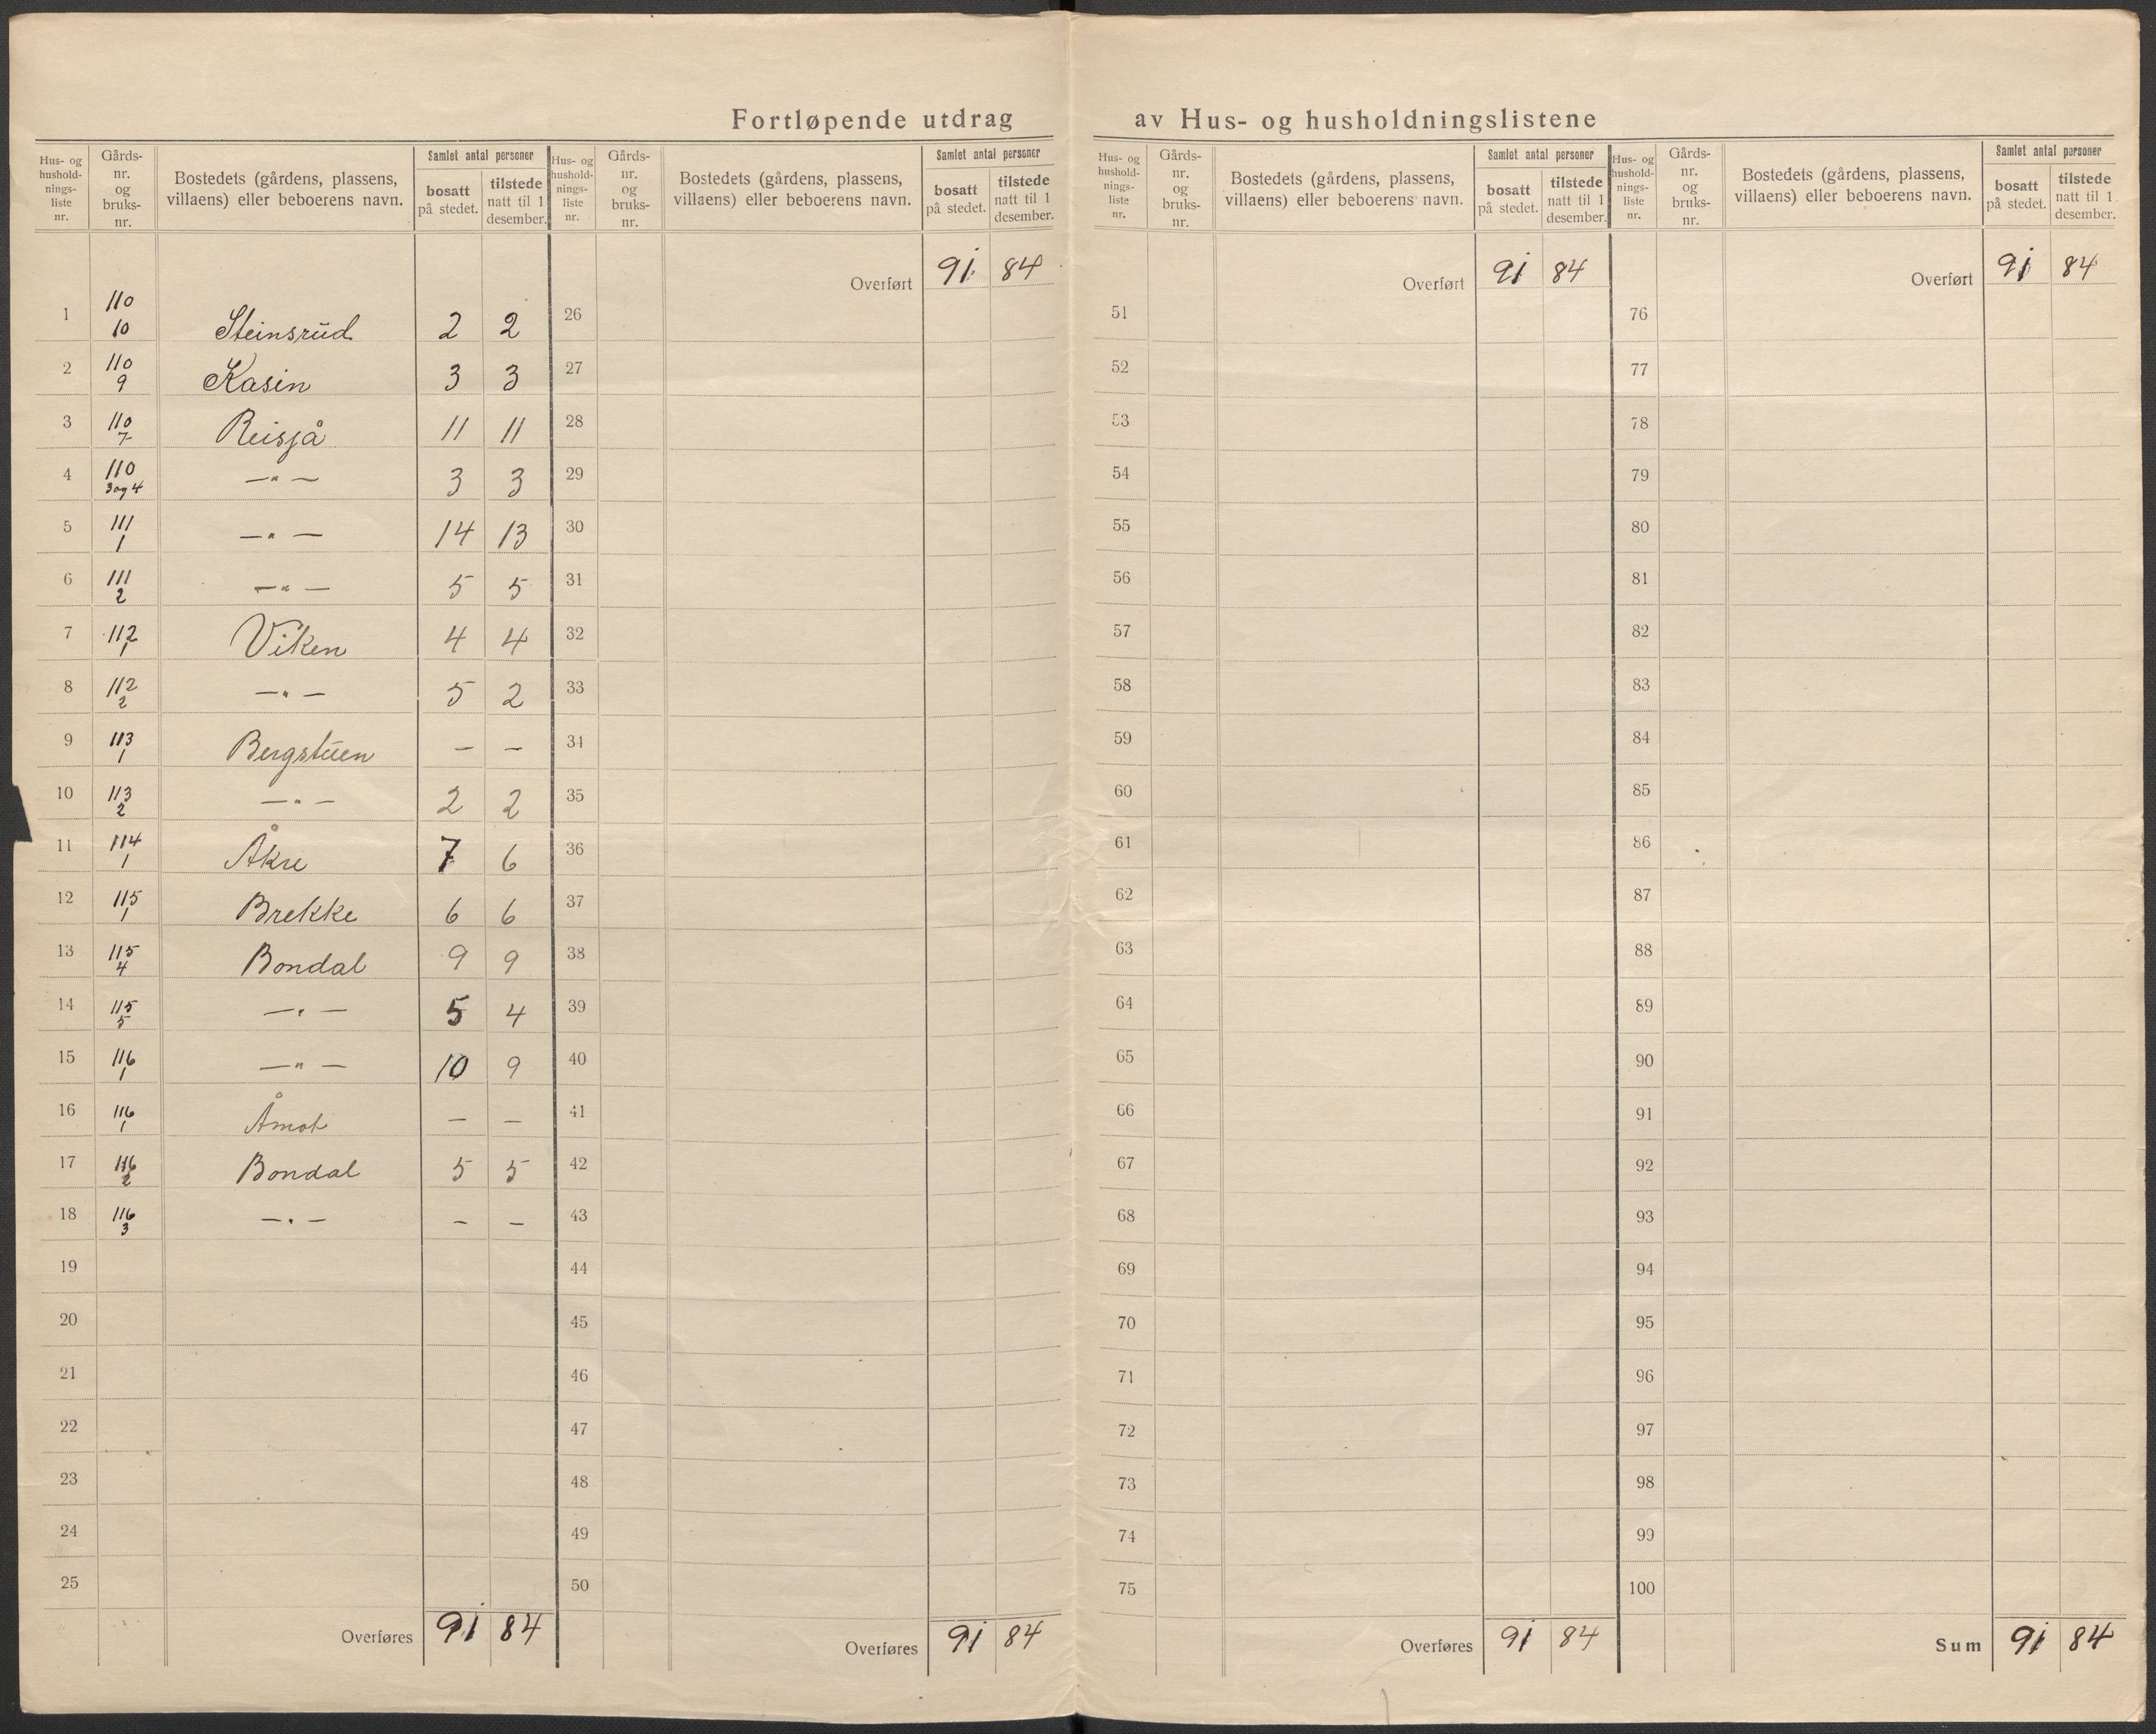 Fortløpende utdrag av Hus- og husholdningslistene
Hus- og hushold-nings-liste nr. | Gårds-nr. og bruks-nr. | Bostedets (gårdens, plassens, villaens) eller beboerens navn. | Samlet antal personer | bosatt på stedet. | tilstede natt til 1 desember.
1 | 110 10 | Steinsrud | 2 | 2
2 | 110 9 | Kasin | 3 | 3
3 | 110 7 | Reisjå | 11 | 11
4 | 110 3 og 4 | —"— | 3 | 3
5 | 111 1 | —"— | 14 | 13
6 | 111 2 | —"— | 5 | 5
7 | 112 1 | Viken | 4 | 4
8 | 112 2 | —"— | 5 | 2
9 | 113 1 | Bergstuen | — | —
10 | 113 2 | —"— | 2 | 2
11 | 114 1 | Åkre | 7 | 6
12 | 115 1 | Brekke | 6 | 6
13 | 115 4 | Bondal | 9 | 9
14 | 115 5 | —"— | 5 | 4
15 | 116 1 | —"— | 10 | 9
16 | 116 1 | Åmot | — | —
17 | 116 2 | Bondal | 5 | 5
18 | 116 3 | —"— | — | —
19
20
21
22
23
24
25
Overføres | 91 | 84
Hus- og hushold-nings-liste nr. | Gårds-nr. og bruks-nr. | Bostedets (gårdens, plassens, villaens) eller beboerens navn. | Samlet antal personer | bosatt på stedet. | tilstede natt til 1 desember.
Overført | 91 | 84
26
27
28
29
30
31
32
33
34
35
36
37
38
39
40
41
42
43
44
45
46
47
48
49
50
Overføres | 91 | 84
Hus- og hushold-nings-liste nr. | Gårds-nr. og bruks-nr. | Bostedets (gårdens, plassens, villaens) eller beboerens navn. | Samlet antal personer | bosatt på stedet. | tilstede natt til 1 desember.
Overført | 91 | 84
51
52
53
54
55
56
57
58
59
60
61
62
63
64
65
66
67
68
69
70
71
72
73
74
75
Overføres | 91 | 84
Hus- og hushold-nings-liste nr. | Gårds-nr. og bruks-nr. | Bostedets (gårdens, plassens, villaens) eller beboerens navn. | Samlet antal personer | bosatt på stedet. | tilstede natt til 1 desember.
Overført | 91 | 84
76
77
78
79
80
81
82
83
84
85
86
87
88
89
90
91
92
93
94
95
96
97
98
99
100
Sum | 91 | 84